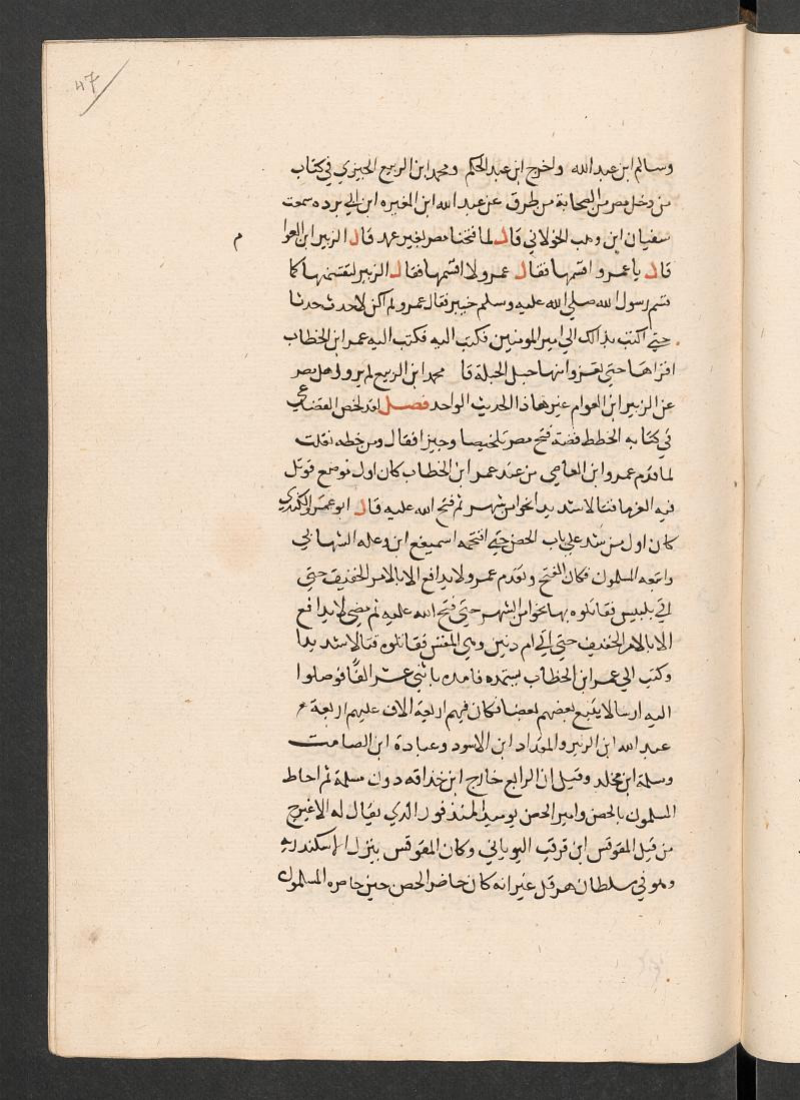 47
وسالم ابن عبد الله واخرج ابن عبد الحكم ومحمد ابن الربيع الجيزي في كتاب
من دخل مصر من الصحابة من طرق عن عبد الله ابن المغيره ابن ابي برده سمعت
سفيان ابن وهب الخولاني قال لما فتحنا مصر بغير عهد قال الزبير ابن العوا م
قال يا عمرو اقسمها فقال عمرو لا اقسمها فقال الزبير لتقسمنها كما
قسم رسول الله صلي الله عليه وسلم خيبر فقال عمرو لم اكن لاحدث حدثا
حتي اكتب بذالك الي امير المومنين فكتب اليه فكتب اليه عمر ابن الخطاب
اقراها حتي تغزوا منها حبل الحبلة قا محمد ابن الربيع لم يرو اهل مصر
عن الزبير ابن العوام غير هاذا الحديث الواحد فصل لقد لخص القضاعي
في كتابه الخطط قصة فتح مصر تلخيصا وجيزا فقال ومن خطه نقلت
لما قدم عمرو ابن العاصي من عند عمر ابن الخطاب كان اول موضع قوتل
فيه الفرما قتالا شديدا نحوا من شهر ثم فتح الله عليه قال ابو عمرو الكندي
كان اول من شد علي باب الحصن حتي اقتحمه اسميفع ابن وعله السباي
واتبعه المسلمون فكان الفتح وتقدم عمرو لا يدافع الا بالامر الخفيف حتي
اتي بلبيس فقاتلوه بها نحوا من الشهر حتي فتح الله عليه ثم مضي لا يدافع
الا بالامر الخفيف حتي اتي ام دنين وهي المقس فقاتلوه قتالا شديدا
وكتب الي عمر ابن الخطاب يستمده فامده باثني عشر الفا فوصلوا
اليه ارسالا يتبع بعضهم بعضا فكان فيهم اربعة الاف عليهم اربعة
عبد الله ابن الزبير والمقداد ابن الاسود وعبادة ابن الصامت
وسلمة ابن مخلد وقيل ان الرابع خارج ابن حذافه دون سلمة ثم احاط
المسلمون بالحصن وامير الحصن يوميذ المندفور الذي يقال له الاعيرج
من قبل المقوقس ابن قرقب اليوناني وكان المقوقس ينزل الاسكندريه
وهو في سلطان هرقل غير انه كان حاضر الحصن حين حاصره المسلمون